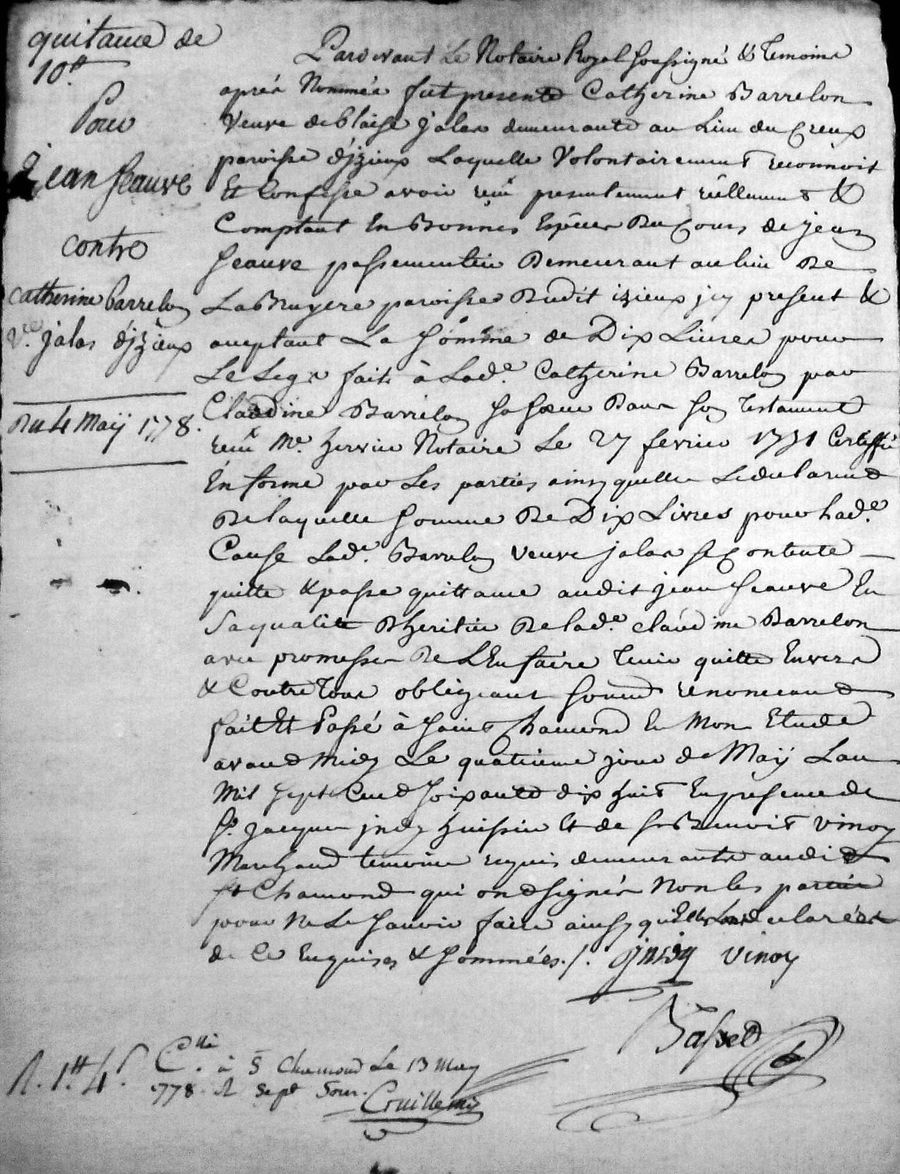 quitance de
10tt
Pour
jean feauve
contre
catherine barrelon
Ve. jalas d'jzieux
Du 4 Maÿ 1778.
Pardevant Le Notaire Royal soussigné & temoins
aprés Nommés fut presente Catherine Barrelon
Veuve de blaise jalas demeurante au Lieu du Creux
paroisse d'jzieux Laquelle Volontairement reconnoit
Et Confesse avoir reçu presentement réellement &
Comptant En Bonnes Espèces Du Cours de jean
feauve passementier Demeurant au lieu De
La Bruyere paroisse Dudit izieux jcy present &
acceptant La Somme de Dix Livres pour
Le Legs fait à Lade. Catherine Barrelon par
Claudine Barrelon Sa Sœur Dans Son Testament
reçu Me. hervier Notaire Le 27 fevrier 1771 Certiffié
En forme par Les parties ainsy quelles Le declarent
De laquelle Somme De Dix Livres pour Lade.
Cause Lade. Barrelon veuve jalas Se Contente
quitte & passe quittance audit jean feauve En
Sa qualité D'heritier De lade. claudine Barrelon
avec promesse De L'En faire Tenir quitte Envers
& Contre Tous obligeant Soumt. renonceant
fait Et Passé à Saint Chamond En Mon Etude
avant Midy Le quatrieme jour de Maÿ L'an
Mil Sept Cent Soixante dix huit En presence de
Sr. Jacques jndy huissier Et de Sr Benoit Vinoy
Marchand temoins requis demeurants audit
St Chamond qui ont signés Non les parties
pour Ne Le Savoir faire ainsy qu'Elles L'ont declaré
de Ce Enquises & Sommées ./. jndy Vinoy
Basset
R. 1tt 4s. Clle. à St Chamond Le 13 May
1778. R Sept Sous.